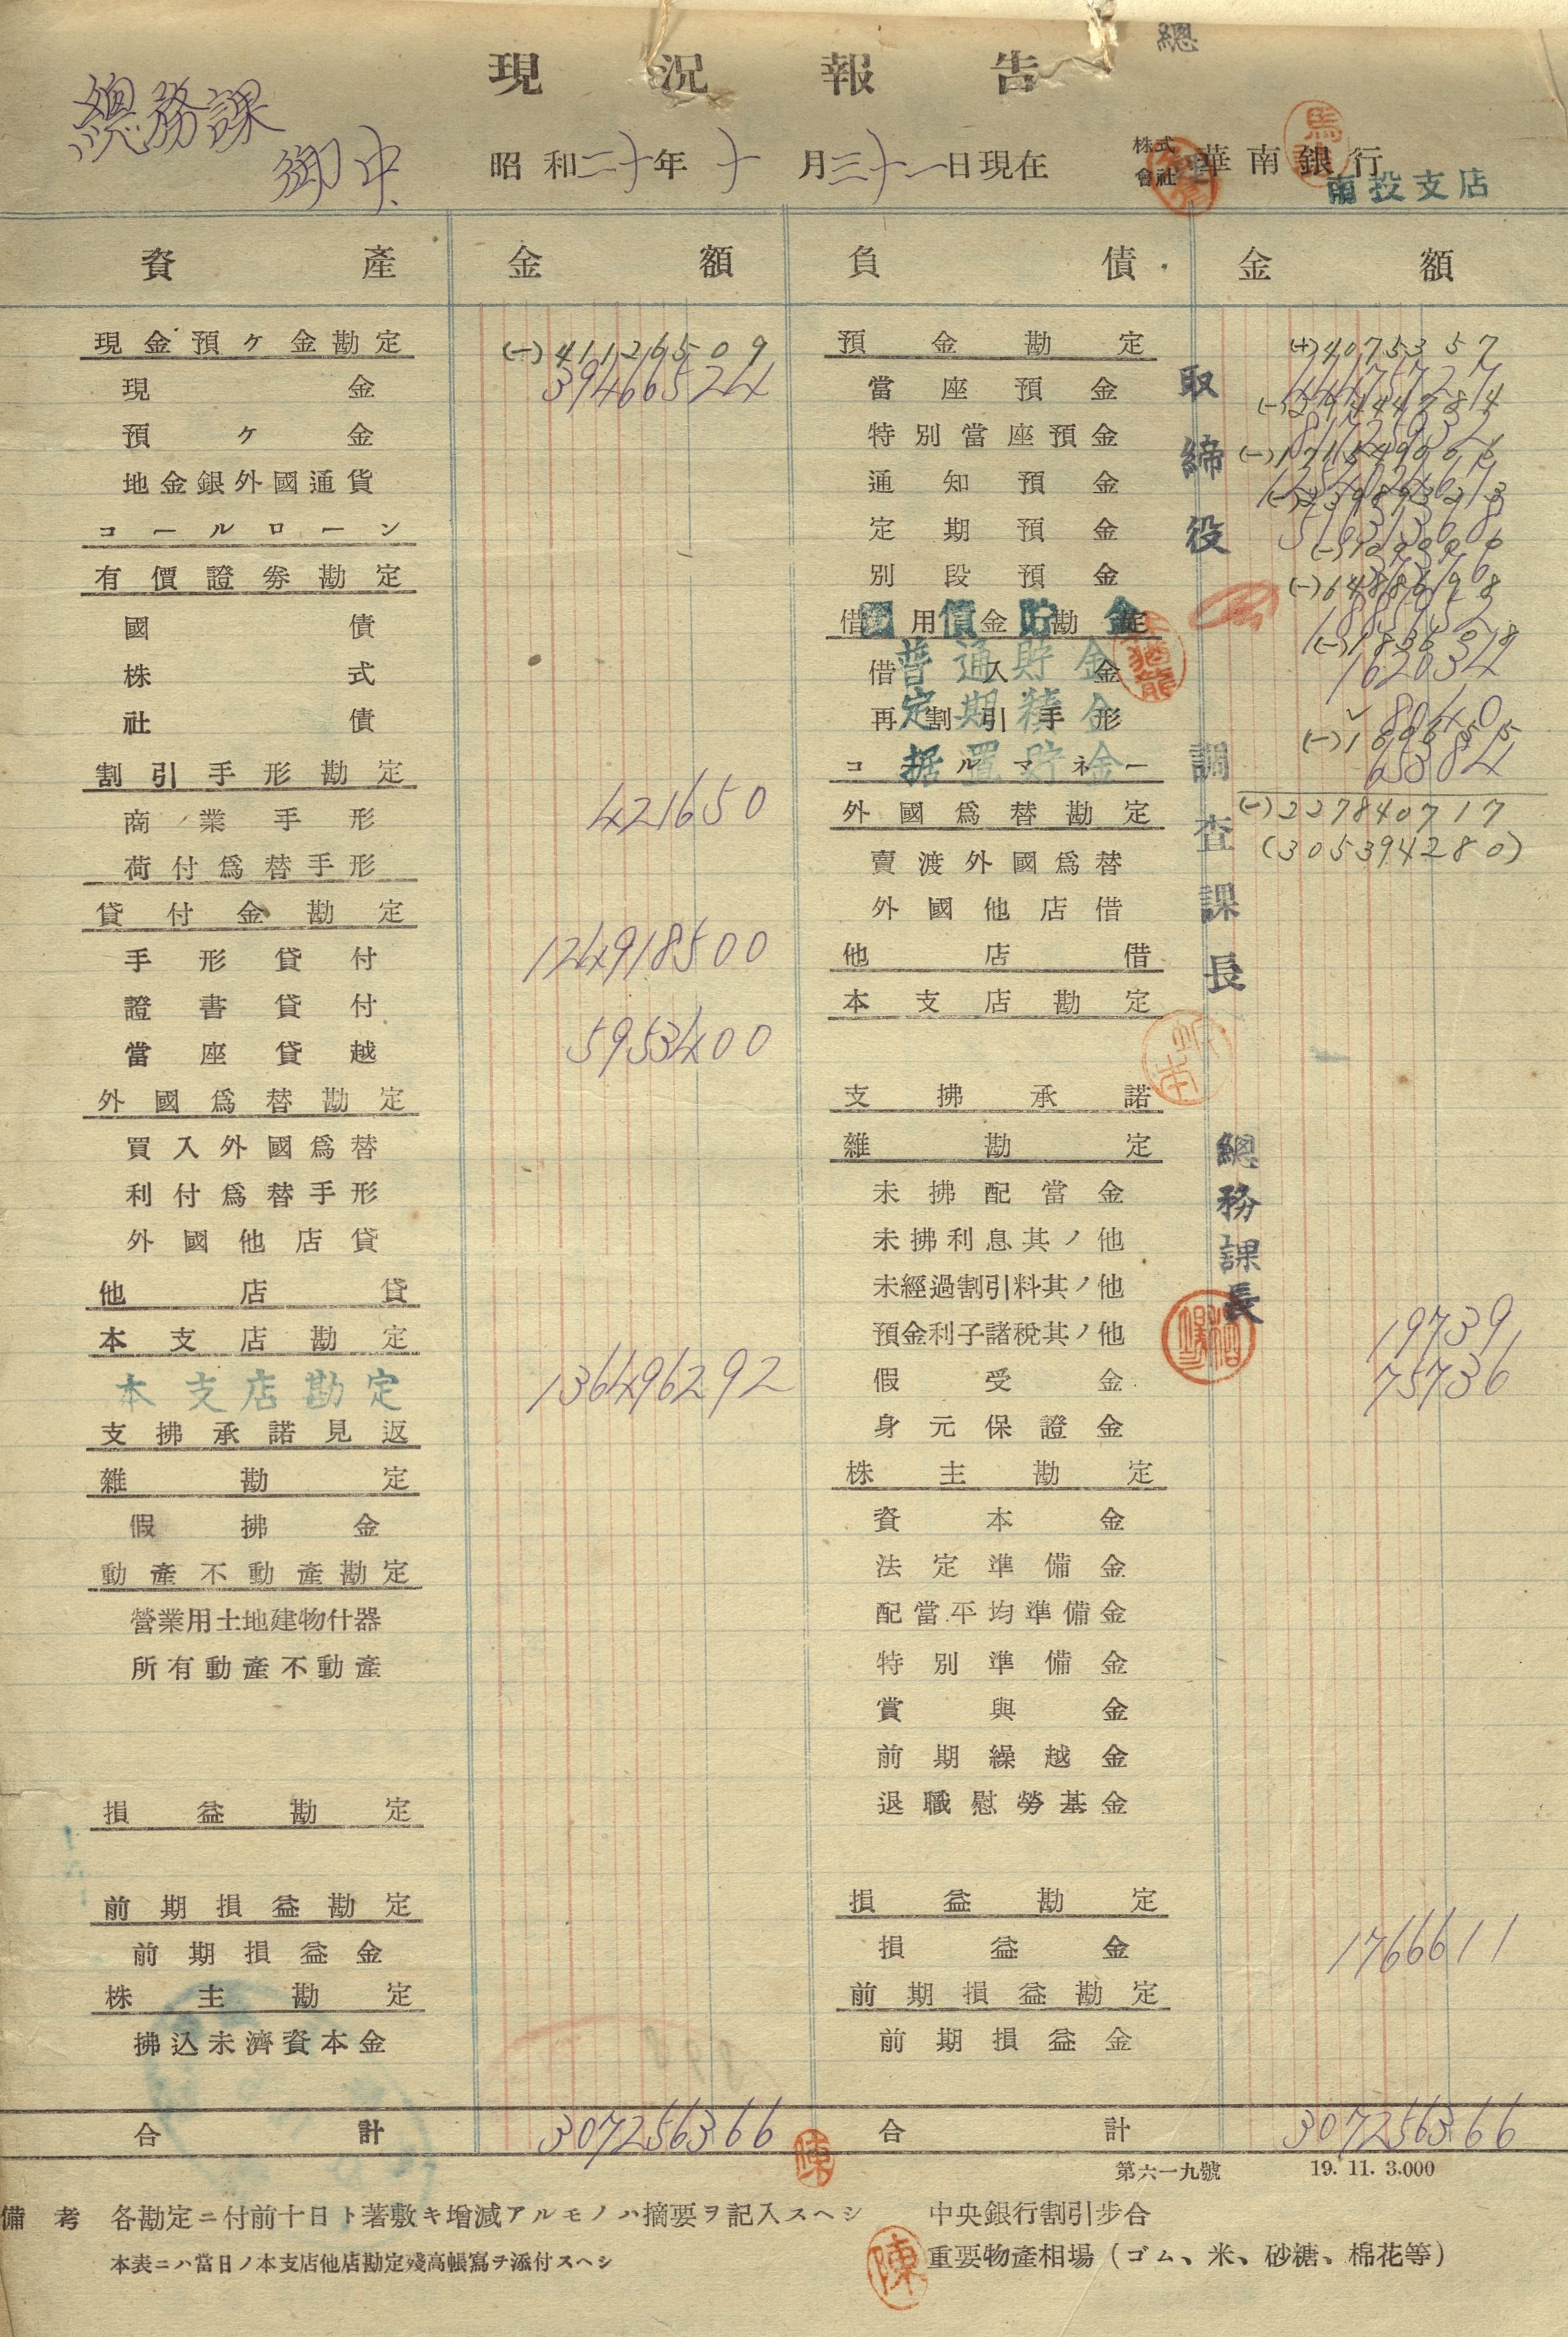 總
現況報告
總務課
御中
昭和二十年十月三十一日現在
株式會社華南銀行
南投支店
資產 金額 負債 金額
現金預ケ金勘定 (一)41126509
現金 39466524
預ケ金
地金銀外國通貨
コールローン
有價證券勘定
國債
株式
社債
割引手形勘定
商業手形 421650
荷付爲替手形
貸付金勘定
手形貸付 124918500
證書貸付
當座貸越 5953400
外國爲替勘定
買入外國爲替
利付爲替手形
外國他店貸
他店貸
本支店勘定
本支店勘定 136496292
支拂承諾見返
雜勘定
假拂金
動產不動產勘定
營業用土地建物什器
所有動產不動產
損益勘定
前期損益勘定
前期損益金
株主勘定
拂込未濟資本金
合計 307256366
預金勘定 (+)4075357
當座預金
特別當座預金
通知預金
定期預金
別段預金
借用金勘定
借入金
普通貯金
再割引手形
定期積金
コールマネー
据置貯金
80440
65384
外國爲替勘定 (一)227840717
賣渡外國爲替 (305394280)
外國他店借
他店借
本支店勘定
支拂承諾
雜勘定
未拂配當金
未拂利息其ノ他
未經過割引料其ノ他
預金利子諸稅其ノ他 19739
假受金 75736
身元保證金
株主勘定
資本金
法定準備金
配當平均準備金
特別準備金
賞與金
前期繰越金
退職慰勞基金
損益勘定
損益金 1766611
前期損益勘定
前期損益金
合計 307256366
取締役
調査課長
總務課長
陳
第六一九號 19. 11. 3.000
備考 各勘定ニ付前十日ト著敷キ增減アルモノハ摘要ヲ記入スヘシ
本表ニハ當日ノ本支店他店勘定殘高帳寫ヲ添付スヘシ
中央銀行割引步合
陳
重要物產相場(ゴム、米、砂糖、棉花等)